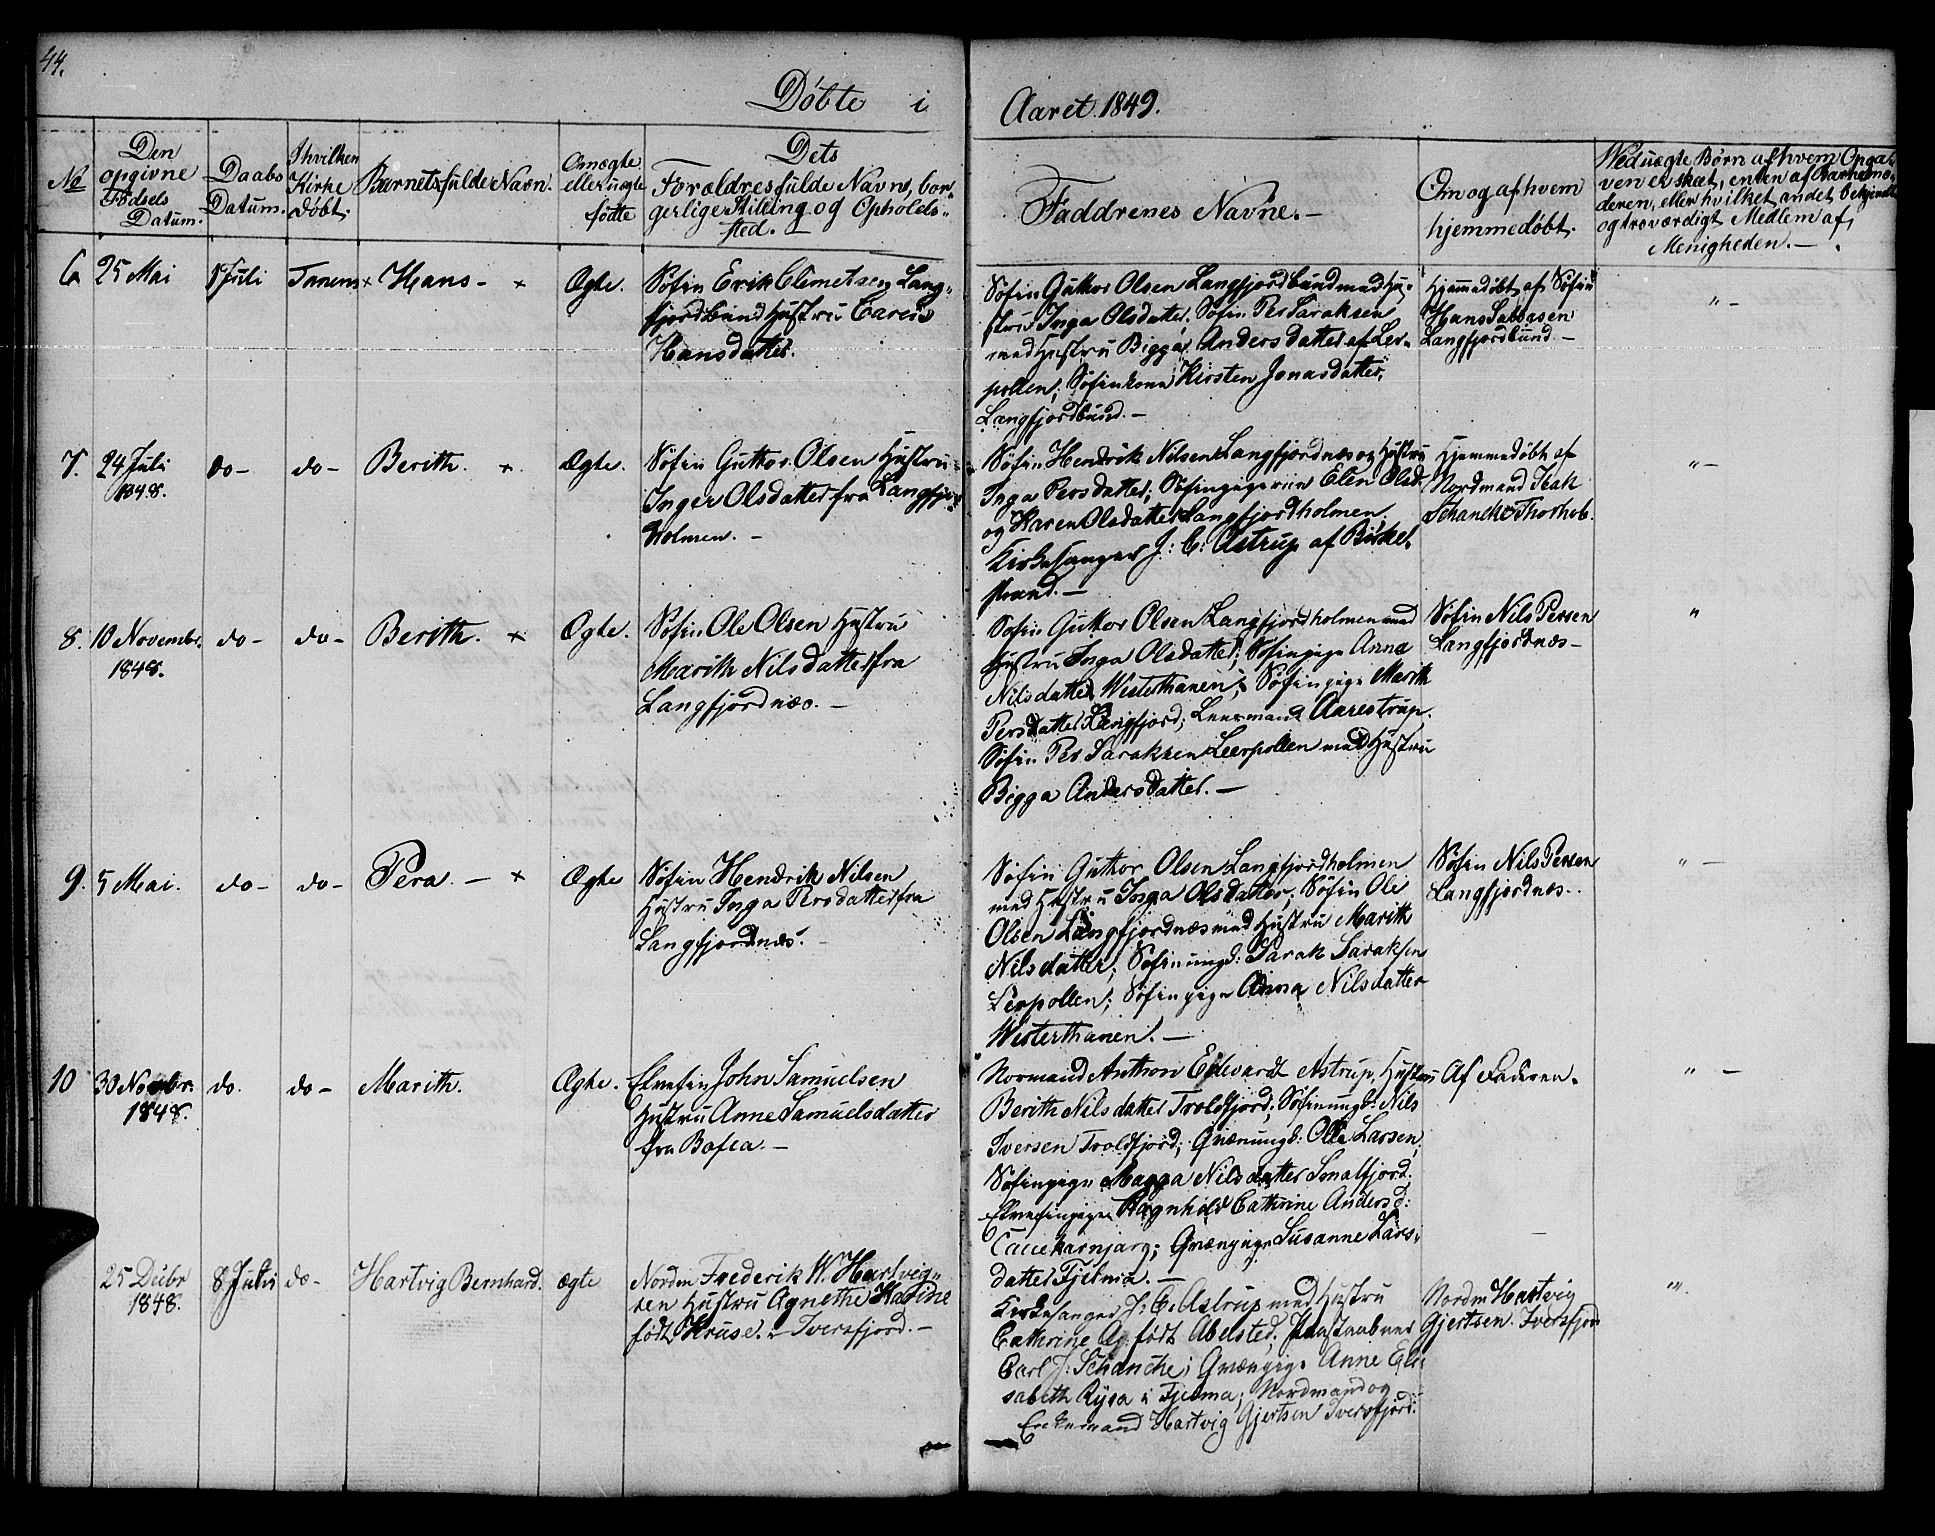 44.
Döbte i Aaret 1849.
No
Den opgivne Fødsels Datum.
Daabs Datum.
I hvilken Kirke døbt.
Barnets fulde Navn.
Om ægte eller uægte fødte
Dets Forældres fulde Navne, bor-
gerlige Stilling og Opholds-
sted.
Faddrenes Navne.
Om og af hvem hjemmedøbt.
Ved uægte Børn af hvem Opga-
ven er skeet, enten af Barnemo-
deren, eller hvilket andet bekjendt
og troværdigt Medlem af
Menigheden.
6 25 Mai 1 Juli Tanem × Hans - × Ægte.
Søfin Erik Clemetsen Lang-
fjordbund Hustru Caren
Hansdatter.
Søfin Guttor Olsen Langfjordbund med Hu-
stru Inga Olsdatter, Søfin Per Saraksen
med Hustru Bigga Andersdatter af Ler-
pollen; Søfinkone Kirsten Jonasdatter,
Langfjordbund. -
Hjemmedøbt af Søfin
Hans Labbasen
Langfjordbund. -
" -
7. 24 Juli 1848. do - do - Berith. × Ægte.
Søfin Guttor Olsen Hustru
Inger Olsdatter fra Langfjord-
holmen. -
Søfin Hendrik Nilsen Langfjordnæs og Hustru
Inga Persdatter; Søfinpigerne Elen Olsd.
og Karen Olsdatter Langfjordholmen.
Kirkesanger J: C: Astrup af Birke-
strand. -
Hjemmedøbt af
Nordmand Isak
Schancke Thorhob.
" -
8. 10 Novembr. 1848. do - do - Berith. × Ægte.
Søfin Ole Olsen Hustru
Marith Nilsdatter fra
Langfjordnæs. -
Søfin Guttor Olsen Langfjordholmen med
Hustru Inga Olsdatter; Søfinpige Anna
Nilsdatter Westerthanen; Søfinpige Marith
Persdatter Langfjord; Leensmand Aarestrup.
Søfin Per Saraksen Leerpollen med Hustru
Bigga Andersdatter. -
Søfin Nils Persen
Langfjordnæs -
"
9. 5 Mai. do - do - Pera. - × Ægte
Søfin Hendrik Nilsen
Hustru Inga Persdatter fra
Langfjordnæs. -
Søfin Guttor Olsen Langfjordholmen
med Hustru Inga Olsdatter; Søfin Ole
Olsen Langfjordnæs med Hustru Marith
Nilsdatter; Søfinungk: Sarak Saraksen
Lerpollen; Søfinpige Anna Nilsdatter
Westerthanen. -
Søfin Nils Persen
Langfjordnæs -
" -
10 30 Novbr. 1848. do. do - Marith. Ægte.
Elvefin John Samuelsen
Hustru Anne Samuelsdatter
fra Bofea. -
Normand Anthon Edvardt Astrup, Hustru
Berith Nilsdatter Troldfjord; Søfinungk: Nils
Iversen Troldfjord; Qvænungk: Olle Larsen,
Søfinpige Magga Nilsdatter Smalfjord.
Elvefinpige Ragnhild Cathrine Andersd:
; Qvænpige Susanne Lars-
datter Fjelma. -
Af Faderen.
" -
25 Decbr 1848. 8 Juli do - Hartvig Bernhard. ægte
Nordm Frederik W. Hartvig-
sen Hustru Agnethe Katrine
født Kruse. - Iversfjord. -
Kirkesanger J: C: Astrup med Hustru
Cathrine A. født Abelsted.
Carl J: Schanche; Qvænpige Anne Eli-
sabeth Rysa i Fjelma; Nordmand og
Enkemand Hartvig Gjertsen Iversfjord.
Nordm Hartvig
Gjertsen. Iversfjord
"